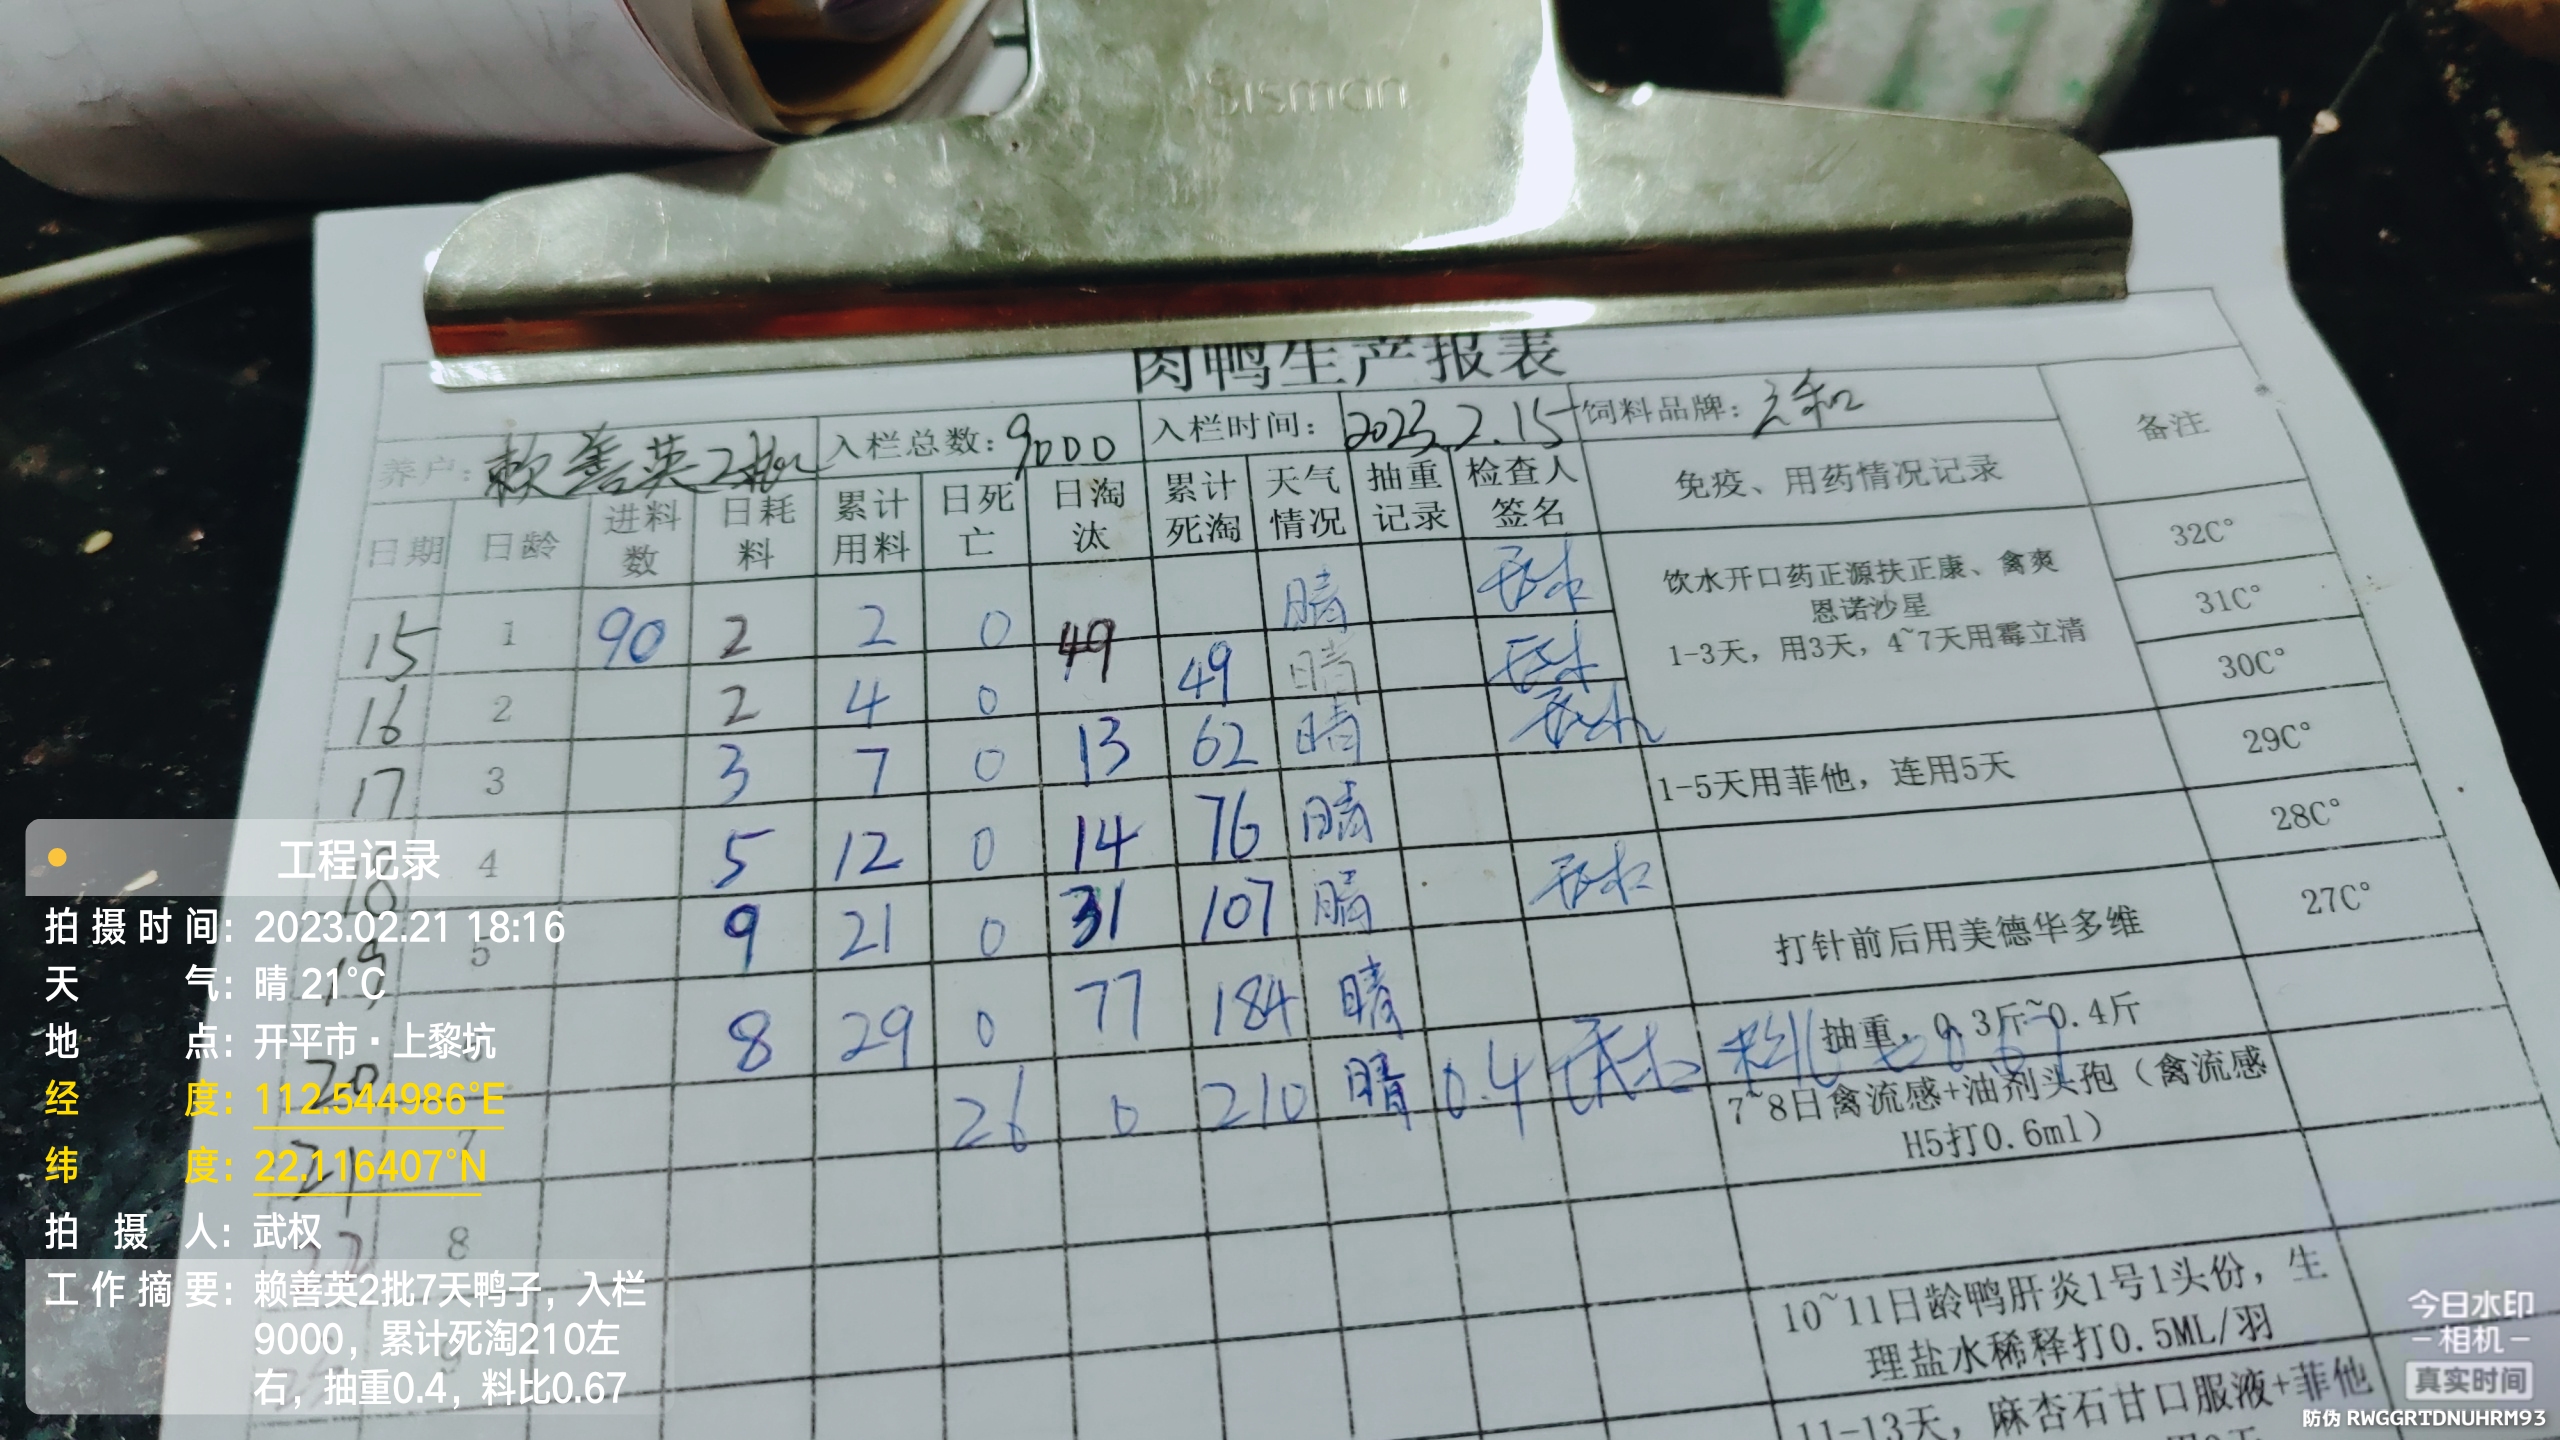 Sisman
肉鸭生产报表
养户：赖善英2批 入栏总数：9000 入栏时间：2023.2.15 饲料品牌：
日期 日龄 进料数 日耗料 累计用料 日死亡 日淘汰 累计死淘 天气情况 抽重记录 检查人签名 免疫、用药情况记录 备注
15 1 90 2 2 0 49 晴 饮水开口药正源扶正康、禽爽 32C°
恩诺沙星
16 2 2 4 0 49 晴 1-3天，用3天，4~7天用霉立清 31C°
17 3 3 7 0 13 62 晴 30C°
18 4 5 12 0 14 76 晴 1-5天用菲他，连用5天 29C°
19 5 9 21 0 31 107 晴 28C°
20 6 8 29 0 77 184 晴 打针前后用美德华多维 27C°
抽重，0.3斤~0.4斤
21 7 26 0 210 晴 0.4 料比 0.67
7~8日禽流感+油剂头孢（禽流感
H5打0.6ml）
22 8
9
10~11日龄鸭肝炎1号1头份，生
理盐水稀释打0.5ML/羽
11-13天，麻杏石甘口服液+菲他
工程记录
拍摄时间：2023.02.21 18:16
天气：晴 21°C
地点：开平市·上黎坑
经度：112.544986°E
纬度：22.116407°N
拍摄人：武权
工作摘要：赖善英2批7天鸭子，入栏
9000，累计死淘210左
右，抽重0.4，料比0.67
今日水印
相机
真实时间
防伪 RWGGRTDNUHRM93